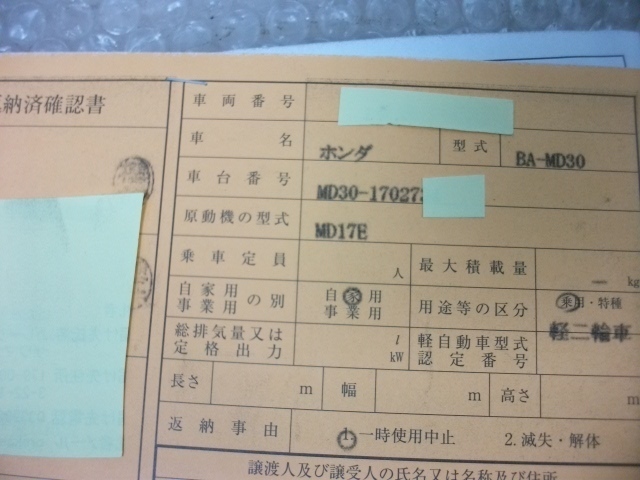 返納済確認書
車両番号
車名 ホンダ 型式 BA-MD30
車台番号 MD30-17027
原動機の型式 MD17E
乗車定員 人 最大積載量 － kg
自家用 事業用 の別 自家用 事業用 用途等の区分 乗用・特種
軽二輪車
総排気量又は 定格出力 l kW 軽自動車型式 認定番号
長さ m 幅 m 高さ m
返納事由 1.一時使用中止 2.滅失・解体
譲渡人及び譲受人の氏名又は名称及び住所